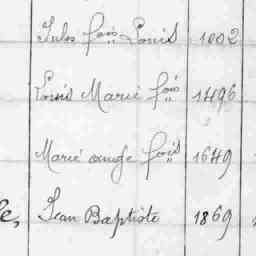 Jules fois Louis 1002
Louis Marie fois 1496
Marie ange fois 1649
Jean Baptiste 1869